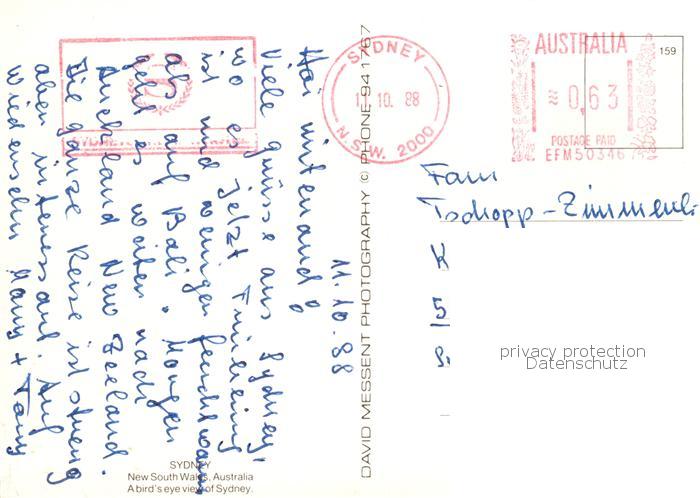 11.10.88
Hai mitenand
Viele grüsse aus Sydney,
wo es jetzt Frühling
ist und weniger feucht warm
als auf Bali. Morgen
geht es weiter nach
Auckland New Zeeland.
Die ganze Reise ist streng
aber interessant. Auf
wiedersehn Mamy + Tony
SYDNEY
New South Wales, Australia
A bird's eye view of Sydney.
DAVID MESSENT PHOTOGRAPHY © PHONE 941 767
SYDNEY
10. 88
N.S.W. 2000
AUSTRALIA
159
≈ 0,63
POSTAGE PAID
EFM50346
Fam
Tschopp-Zimmerli
K
5
privacy protection
Datenschutz